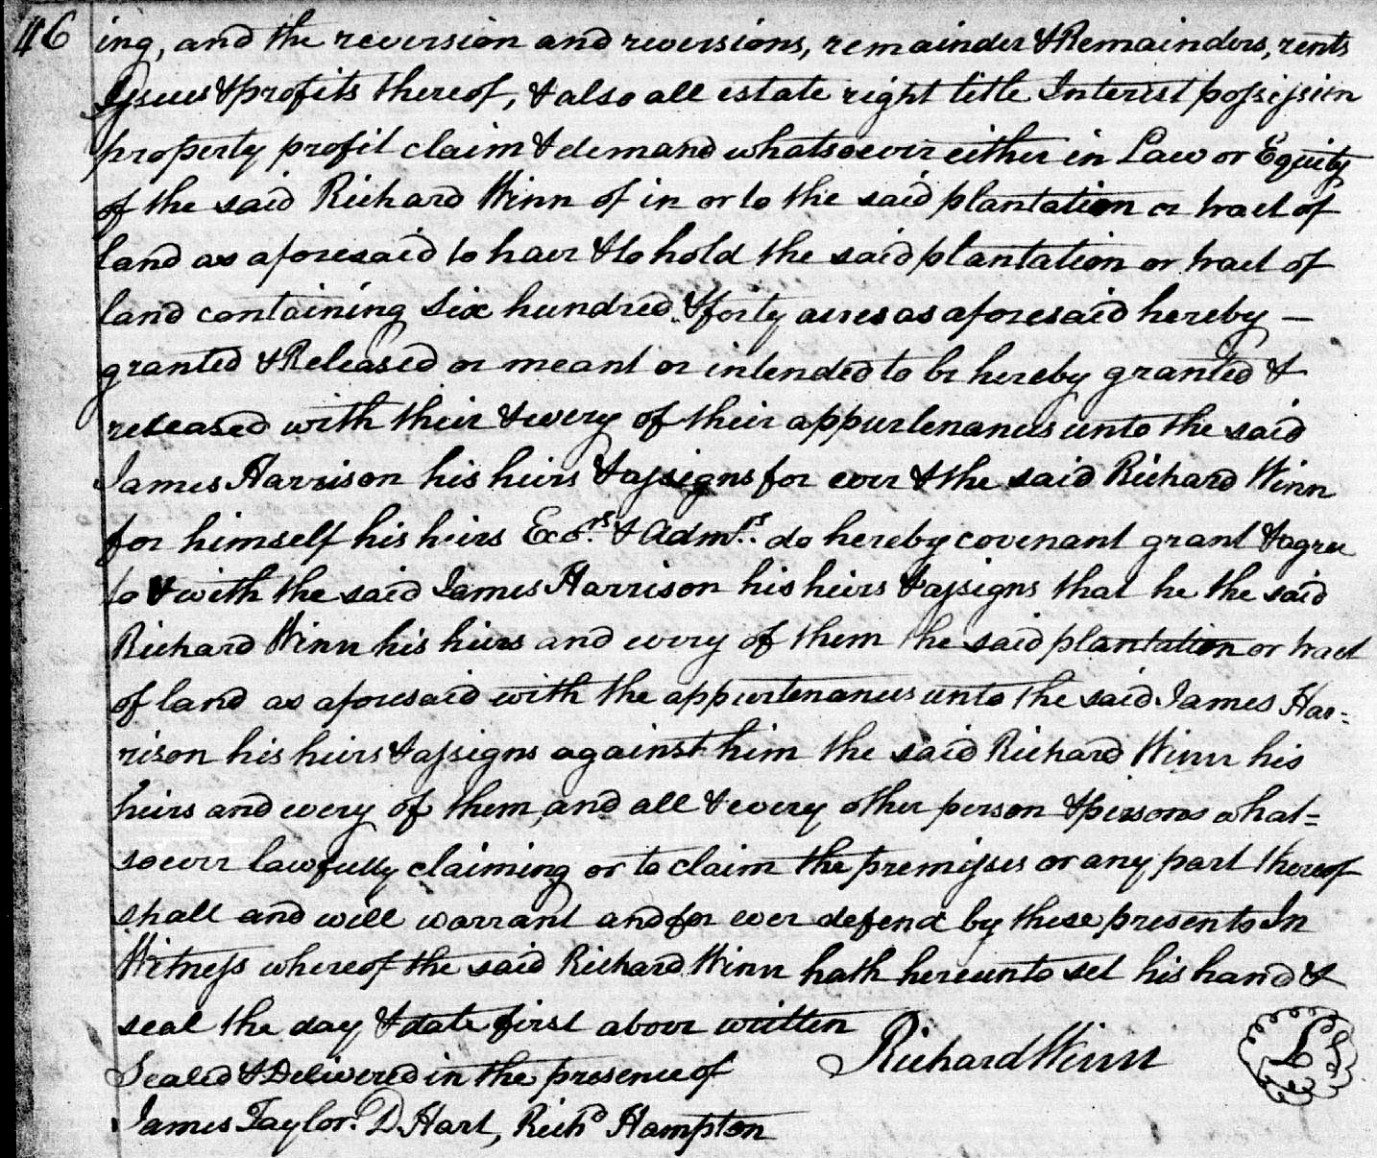 46 ing, and the reversion and reversions, remainder & Remainders, rents
Issues & profits thereof, & also all estate right title Interest possession
property profit claim & demand whatsoever either in Law or Equity
of the said Richard Winn of in or to the said plantation or tract of
land as aforesaid to have & to hold the said plantation or tract of
land containing Six hundred & forty acres as aforesaid hereby —
granted & Released or meant or intended to be hereby granted &
released with their & every of their appurtenances unto the said
James Harrison his heirs & assigns for ever & the said Richard Winn
for himself his heirs Exo.rs & Adm.rs do hereby covenant grant & agree
to & with the said James Harrison his heirs & assigns that he the said
Richard Winn his heirs and every of them the said plantation or tract
of land as aforesaid with the appurtenances unto the said James Har=
rison his heirs & assigns against him the said Richard Winn his
heirs and every of them, and all & every other person & persons what=
soever lawfully claiming or to claim the premisses or any part thereof
shall and will warrant and for ever defend by these presents In
Witness whereof the said Richard Winn hath hereunto set his hand &
seal the day & date first above written
Richard Winn LS
Sealed & Delivered in the presence of
James Taylor. D. Hart, Richd Hampton